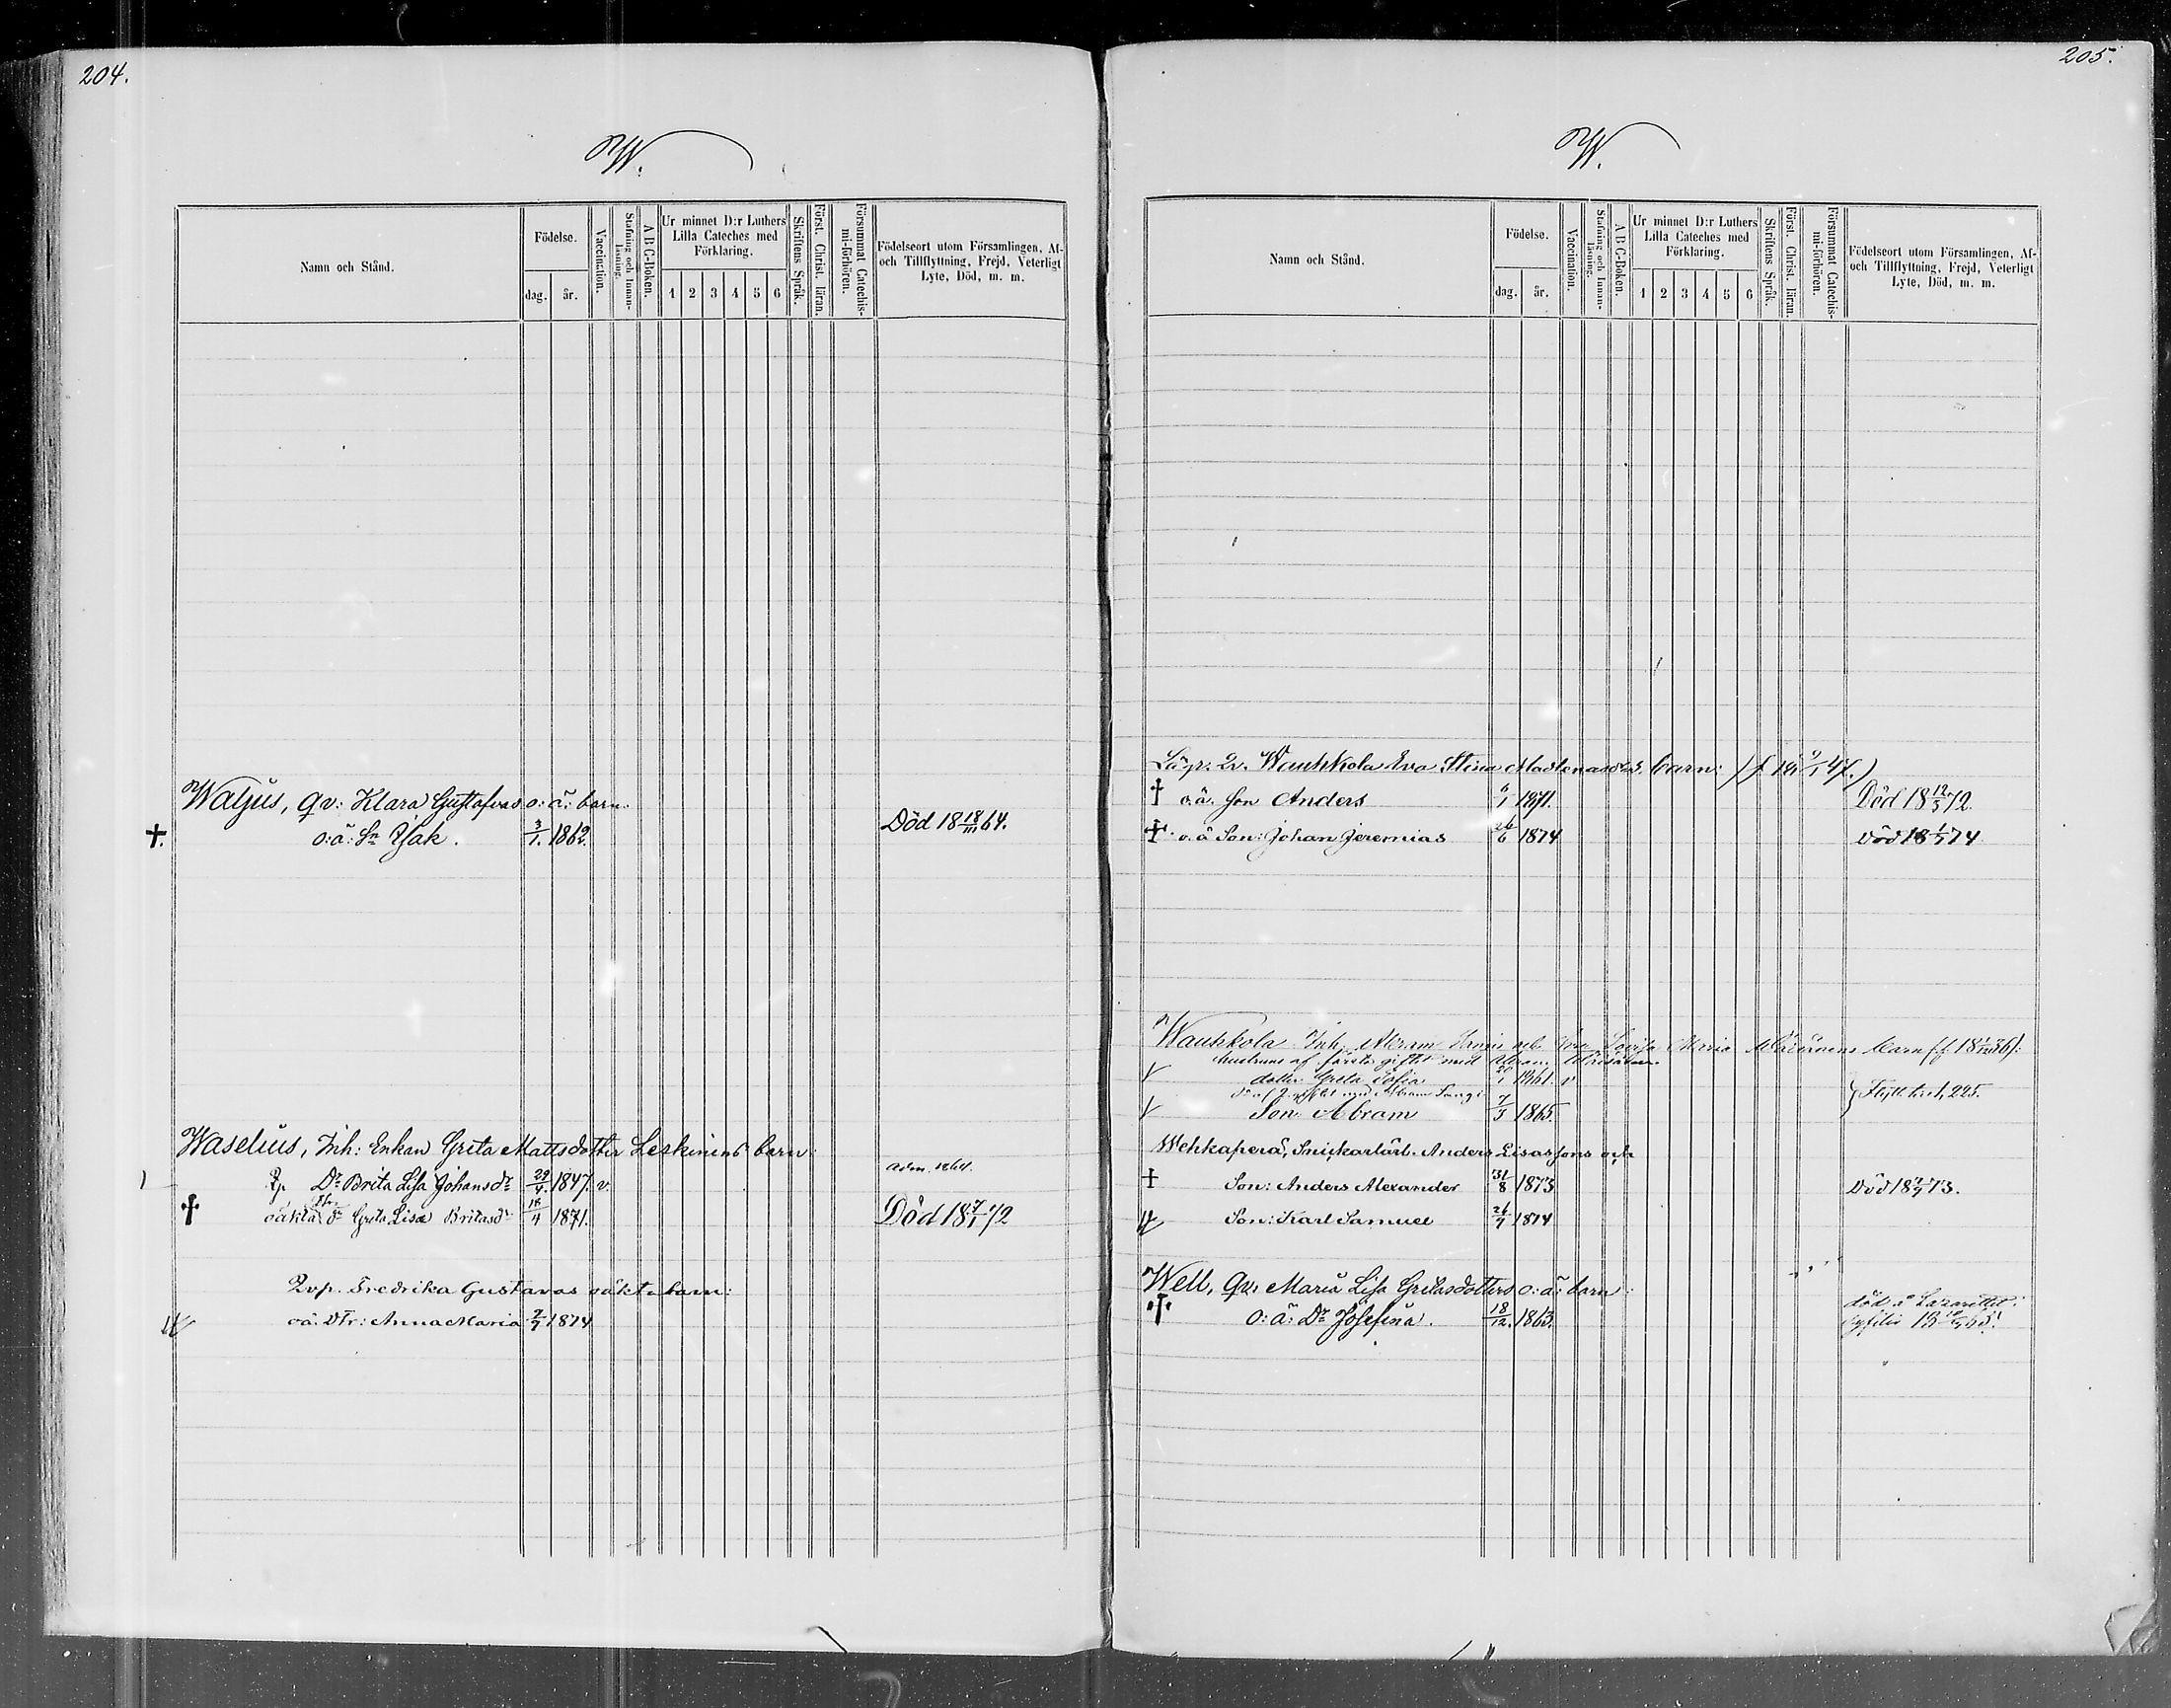 204.
W.
Namn och Stånd.
Födelse.
dag.
år.
Vaccination.
Stafning och Innan-läsning.
A B C-Boken.
Ur minnet D:r Luthers
Lilla Cateches med
Förklaring.
1 2 3 4 5 6
Skriftens Språk.
Först. Christ. läran.
Försummat Catechis-mi-förhören.
Födelseort utom Församlingen, Af-
och Tillflyttning, Frejd, Veterligt
Lyte, Död, m. m.
Waljus, Qv: Klara Gustafvas o: ä: barn.
†. o: ä: Sn Isak. 3/1. 1862. Död 18 18/III 64.
Waselius, Inh: Enkan Greta Mattsdotter Leskinens barn:
Dr Brita Lisa Johansdr 29/4. 1847. v. adm. 1864.
† oäkta dr Greta Lisa Britasdr 1871. Död 18 72
Qvp. Fredrika Gustavas oäkta barn:
oä. Dtr: Anna Maria 7/7 1874
205.
W.
Namn och Stånd.
Födelse.
dag.
år.
Vaccination.
Stafning och Innan-läsning.
A B C-Boken.
Ur minnet D:r Luthers
Lilla Cateches med
Förklaring.
1 2 3 4 5 6
Skriftens Språk.
Först. Christ. läran.
Försummat Catechis-mi-förhören.
Födelseort utom Församlingen, Af-
och Tillflyttning, Frejd, Veterligt
Lyte, Död, m. m.
Wauhkola Eva Stina Madlenasdrs barn:
† o.ä. Son Anders 6/1 1871. Död 18 12/3 72.
† o. ä Son: Johan Jeremias 26/6 1874 Död 18 1/7 74
Wauhkola Inh. Lovisa Maria barn
af första giftet med
dotter Greta Sofia 1861. v
Son Abram 7/3 1865.
Wehkaperä, Snickarlärl. Anders Lisassons och
† Son: Anders Alexander 31/8 1873 Död 18 73.
Son: Karl Samuel 26/7 1874
Well, Qv: Maria Lisa Gretasdotters o: ä: barn:
† o: ä: Dr Josefina. 18/12. 1863. död å Lazarettet
syfilis 18 65.